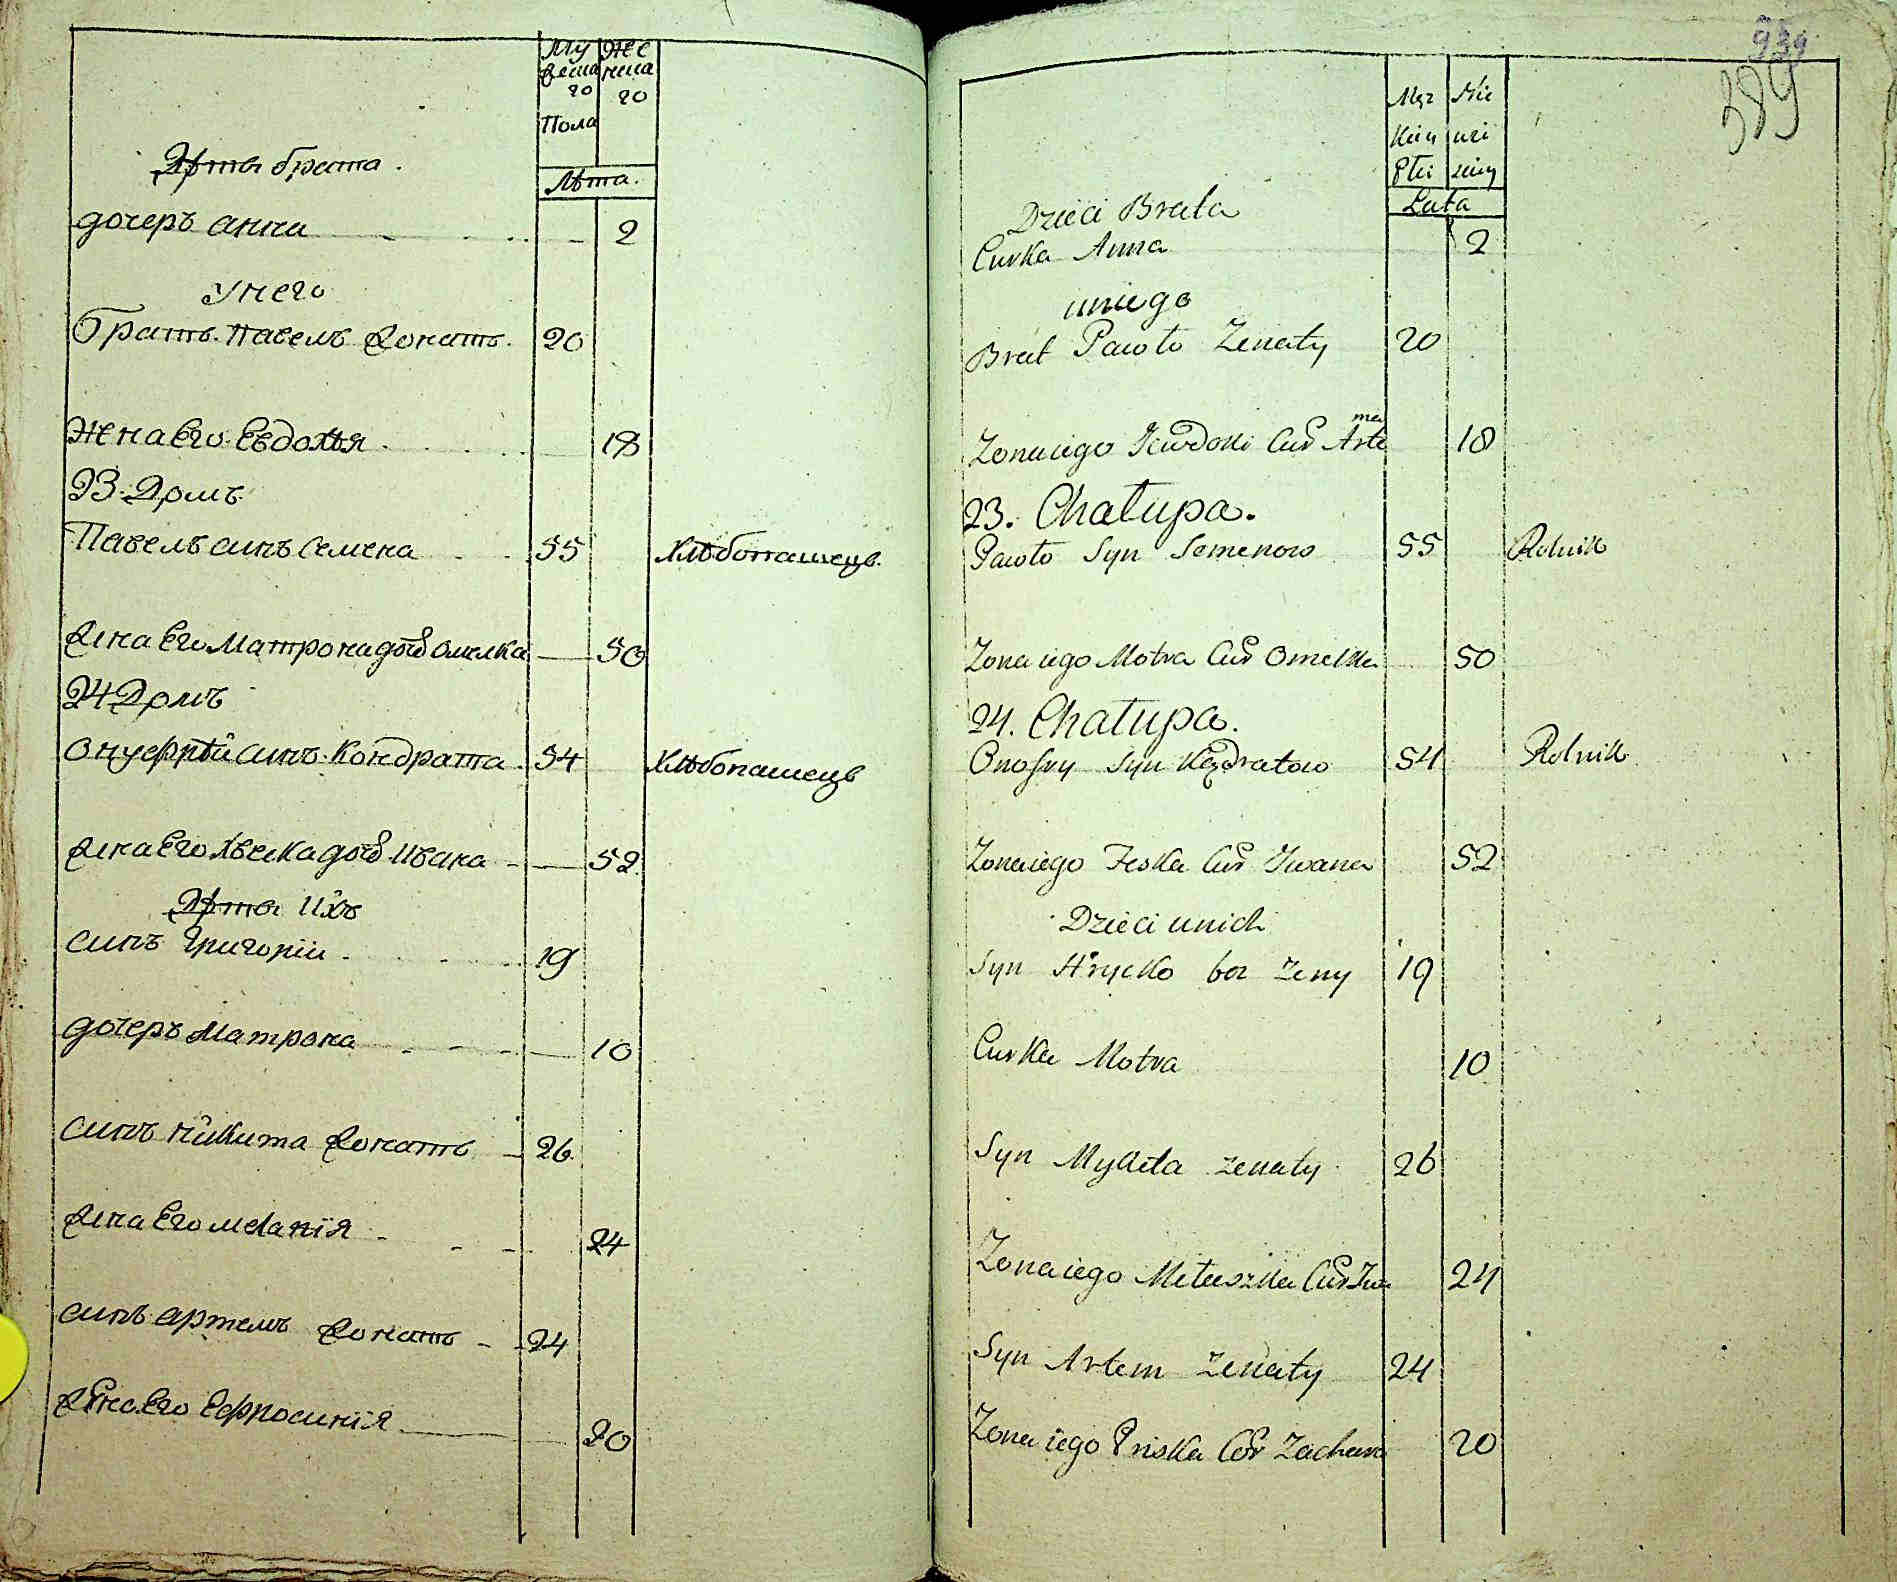 Му
жеска
го
Пола
Же
нска
го
Лѣта.
Дѣти брата.
дочеръ анна 2
У него
братъ Павелъ жонатъ. 20
жена Его Евдохія 18
23 Домъ
Павелъ синъ Семена 55 Хлѣбопашецъ.
жена Его Матрона дочъ Омелка 50
24 Домъ
Онуфрѣй синъ Кондрата 54 Хлѣбопашецъ
жена Его Хвеска дочъ Ивана 52
Дѣти ихъ
синъ Григорій 19
дочеръ Матрона 10
синъ Никита жонатъ 26
жена Его меланія 24
синъ артемъ жонатъ 24
жена Его Ефросинія 20
939
389
Męz
kiey
Płci
Nie
wei
sciey
Lata
Dzieci Brata
Curka Anna 2
u niego
Brat Pawło Zenaty 20
Zona iego Iewdoki Cur Arte
ma 18
23. Chałupa.
Pawło Syn Semenow 55 Rolnik
Zona iego Motra Cur Omelka 50
24. Chałupa.
Onofry Syn Kądratow 54 Rolnik
Zona iego Feska Cur Iwana 52
Dzieci u nich
Syn Hrycko bez zeny 19
Curka Motra 10
Syn Mykita zenaty 26
Zona iego Mełaszka Cur Iwa 24
Syn Artem zenaty 24
Zona iego Priska Cór Zachara 20